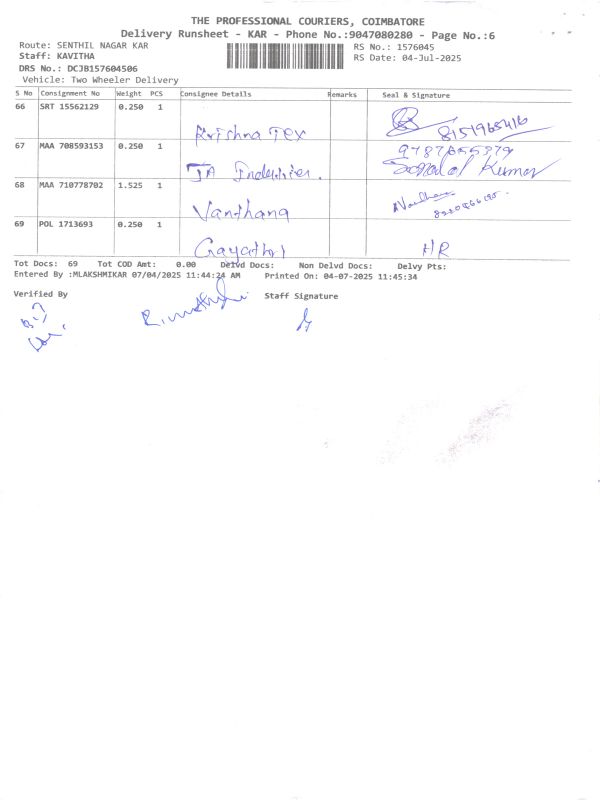 THE PROFESSIONAL COURIERS, COIMBATORE
Delivery Runsheet - KAR - Phone No.:9047080280 - Page No.:6
Route: SENTHIL NAGAR KAR
RS No.: 1576045
Staff: KAVITHA
RS Date: 04-Jul-2025
DRS No.: DCJB157604506
Vehicle: Two Wheeler Delivery
S No Consignment No Weight PCS Consignee Details Remarks Seal & Signature
66 SRT 15562129 0.250 1 Krishna Tex 8151965416
67 MAA 708593153 0.250 1 JA Industries. 9787655379
Kumar
68 MAA 710778702 1.525 1 Vanthana
69 POL 1713693 0.250 1 Gayathri HR
Tot Docs: 69 Tot COD Amt: 0.00 Delvd Docs: Non Delvd Docs: Delvy Pts:
Entered By :MLAKSHMIKAR 07/04/2025 11:44:24 AM Printed On: 04-07-2025 11:45:34
Verified By Staff Signature